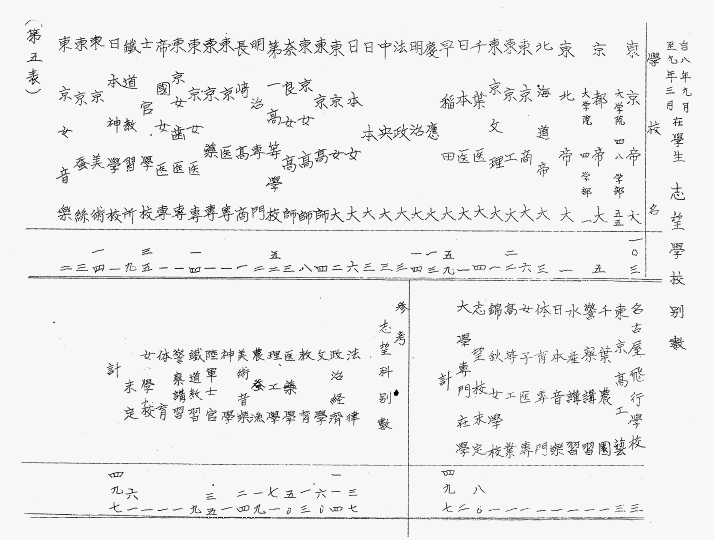 自八年九月
至九年三月 在學生 志望學校別數
學校名
東京帝大 大学院四八 学部五五 一〇三
京都帝大 大学院四 学部一 五
京北帝大 一
北海道帝大 三
東京商大 二
東京工大 二六
東京文理大 一
千葉医大 四
日本医大 一
早稲田大 五九
慶應大 一三
明治大 一四
法政大 三
中央大 三
日本大 三
日本女大 六
東京女大 二
東京高師 四
東京女高師 八
奈良女高師 三
第一高等學校 五二
明治專門 二
長崎高商 三
東京医專 一
東京藥專 一
東京女医專 一四
東京女歯医專 一
帝國女医專 一
士官學校 三五
鐵道教習所 九
日本神學校 一
東京美術 一四
東京蚕絲 三
東京女音樂 二
(第五表)
名古屋飛行學校 三
東京高工藝 三
千葉農園 一
警察講習 一
水産講習 一
日本音樂 一
体育專門 一
女子医專 一
高等工業 一
錦秋女學校 一
志望校未定 八〇
大學專門在學 二
計 四九七
參考
志望科別數
法律 三七
政治経濟 一一四
文學 六〇
教育 一三
医藥學 五〇
理工學 七一
農蚕漁 一九
美術音樂 二四
神學 一
陸軍士官 三五
鐵道教習 九
警察講習 一
体育 一
女學校 一
未定 六一
計 四九七